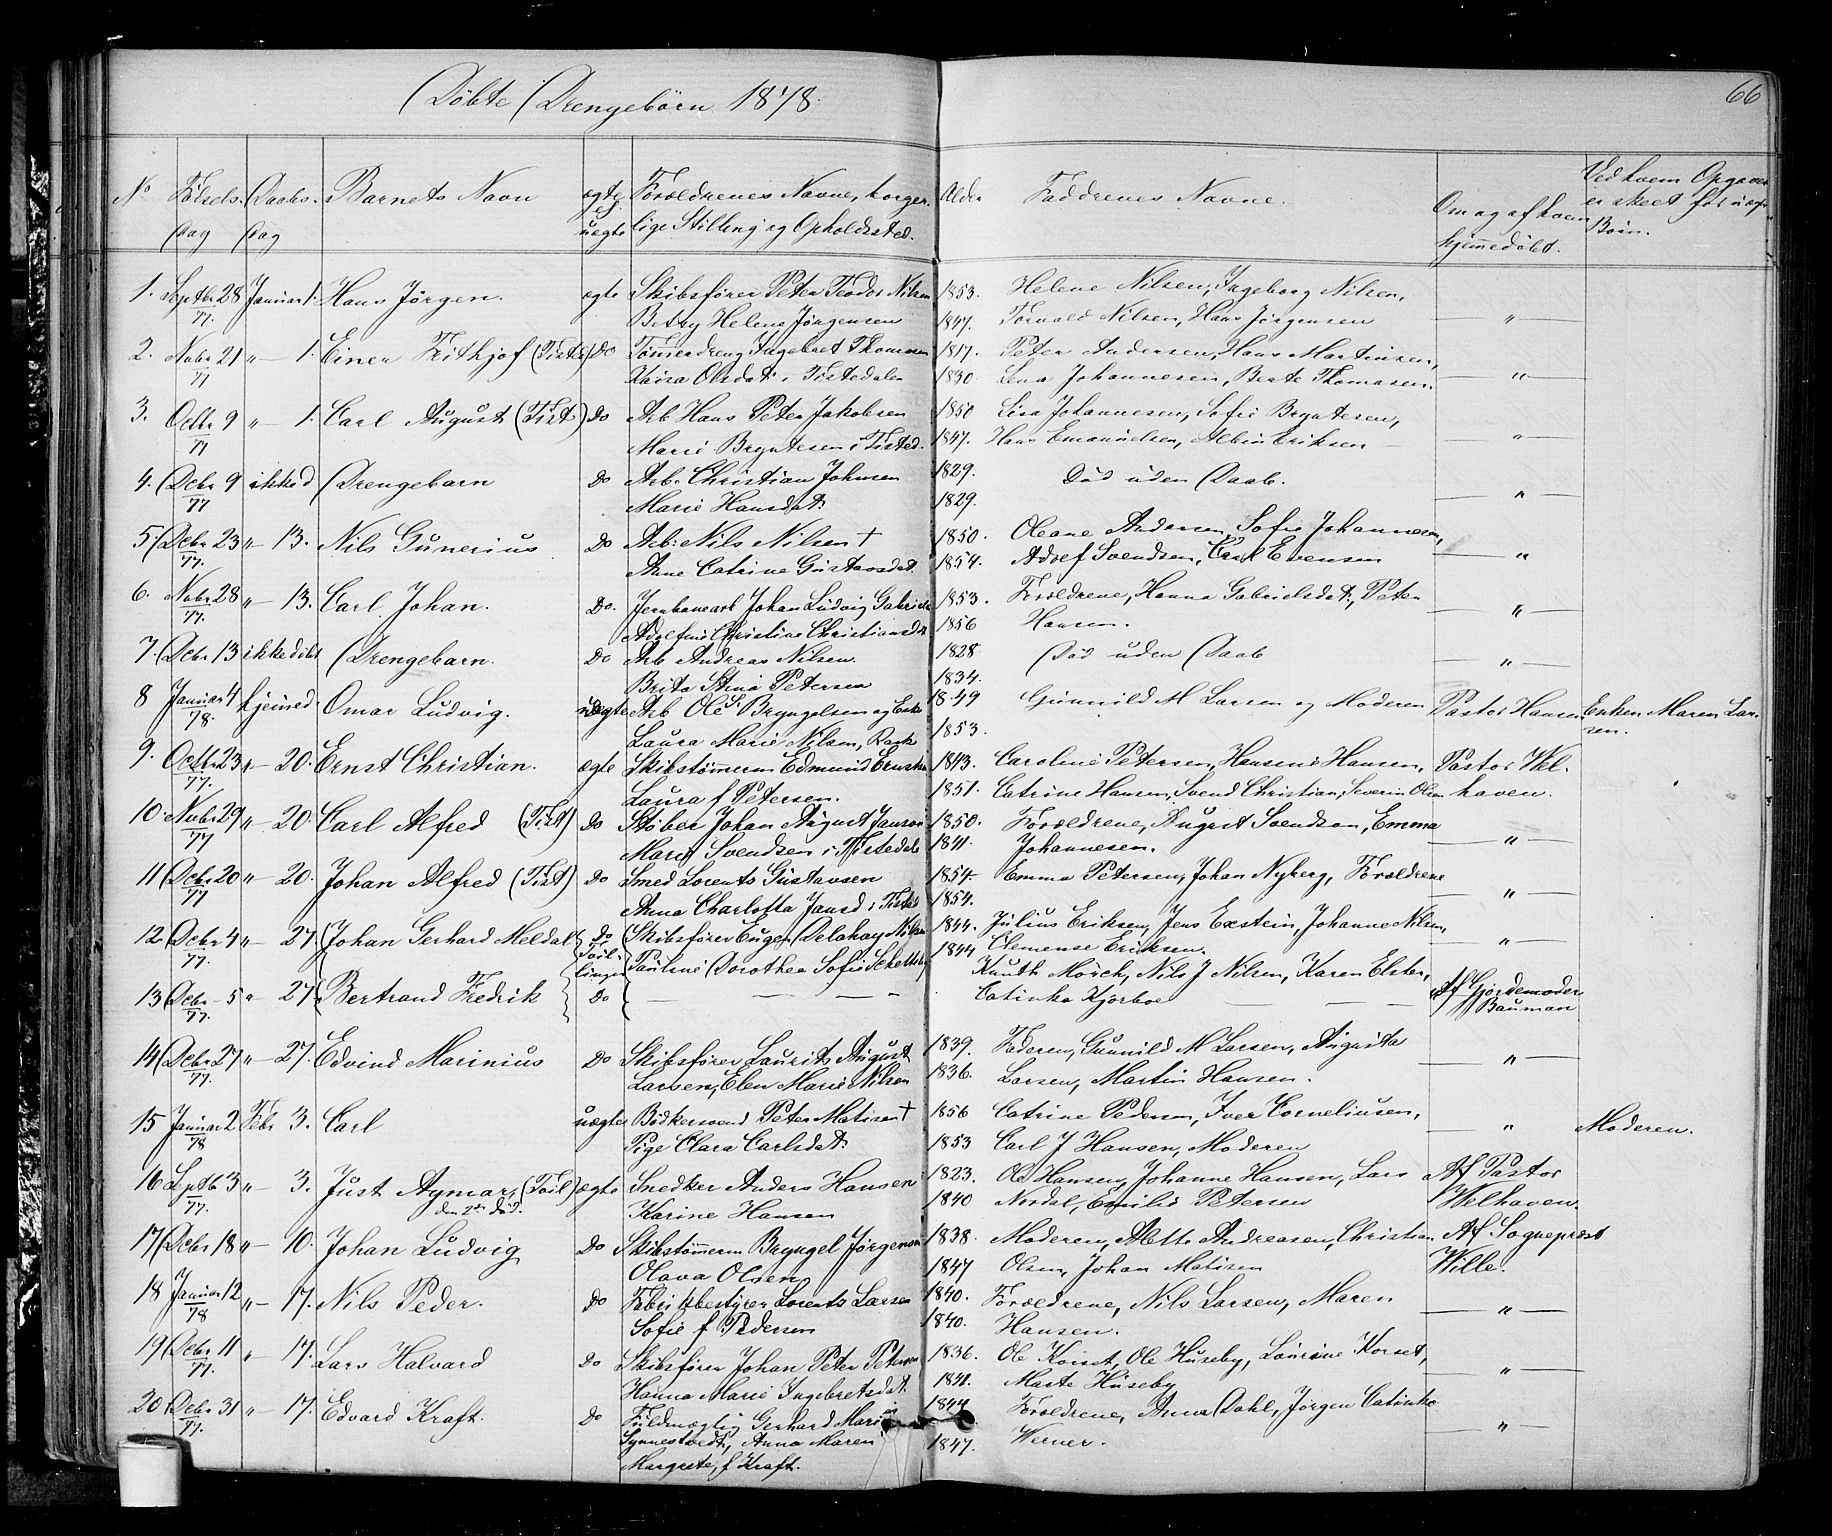 Døbte Drengebørn 1878.
66
No Fødsels Dag Daabs. Dag Barnets Navn ægte og uægte Forældrenes Navne, borgerlige Stilling og Opholdssted. Alder Faddrenes Navne. Om og af hvem hjemmedøbt. Ved hvem Opgaven er skeet for uægte Børn.
1. Septbr 28 77. Januar 1. Hans Jørgen. ægte Skibsfører Peter Teodor Nilsen 1853. Helene Nilsen, Ingeborg Nilsen,
Betzy Helene Jørgensen 1847. Torvald Nilsen, Hans Jørgensen — " —
2. Nvbr 21 77 " — 1. Einer Frithjof (Tiste) Do Tømerdreng Ingebret Thomasen 1817. Peter Andersen, Hans Martinsen,
Kaisa Olsdat. i Tistedalen 1830. Lena Johannesen, Berte Thomasen. — " —
3. Octbr 9 77 " — 1. Carl August (Tist) Do Arb Hans Peter Jakobsen 1850 Lisa Johannesen, Sofie Bryntesen,
Marie Bryntesen i Tisted. 1847. Hans Emanuelsen, Albin Eriksen — " —
4. Dcbr 9 77 ikke d Drengebarn Do Arb. Christian Johnsen 1829. Død uden Daab.
Marie Hansdat. 1829. — " —
5 Dcbr 23 77. " — 13. Nils Gunerius Do Arb: Nils Nilsen † 1850. Oleane Andersen, Sofie Johannesen,
Ane Catrine Gustavsdat. 1854. Adolf Svendsen, Carl Evensen — " —
6. Nvbr 28 77. " — 13. Carl Johan. Do. Jernbanearb Johan Ludvig Gabriels 1853. Forældrene, Hanna Gabrielsdat., Peter
Adolfine Christine Christiansdat 1856 Hansen. — " —
7. Dcbr 13 ikke døbt Drengebarn. Do Arb Andreas Nilsen. 1828 Død uden Daab
Brita Stina Petersen 1834. — " —
8 Januar 4 78. hjemmed Omar Ludvig. uægte Arb Ole Bryngelsen og Enke 1849 Gunnild M Larsen og Moderen Pastor Hansen Enken Maren Larsen.
Laura Marie Nilsen, 1853.
9. Octbr 23 77. " — 20. Ernst Christian. ægte Skibstømerm Edmund Ernstsen 1843. Caroline Petersen, Hansine Hansen, Pastor Wel-
Laura f Petersen. 1851. Catrine Hansen, Svend Christian, Severin Olsen haven.
10. Nvbr 29 77 " — 20. Carl Alfred (Tist) Do Støber Johan August Janson 1850. Forældrene, August Svendsen, Emma
Marie Svendsen i Tistedalen 1841. Johannesen. — " —
11 Dcbr 20 77 " — 20. Johan Alfred (Tist) Do Smed Lorents Gustavsen 1854. Emma Petersen, Johan Nyberg, Forældrene
Anna Charlotta Jansd i Tistedal 1854. — " —
12 Dcbr 4 77. " — 27 Johan Gerhard Meldal Do Tvillinger Skibsfører Eugen Delahay Nilsen 1844. Julius Eriksen, Jens Exstein, Johanne Nilsen,
Pauline Dorothea Sofie 1844 Clemense Eriksen. — " —
13 Dcbr 5 77. " 27 Bertrand Fredrik Do — — — — Knuth Mörch, Nils J Nilsen, Karen Elster,
Catinka Kjörboe — — Af Gjordemoder Bauman
14 Dcbr 27 77. " — 27. Edvind Marinius Do Skibsfører Laurits August 1839. Faderen, Gunnild M Larsen, Augusta
Larsen, Elen Marie Nilsen 1836. Larsen, Martin Hansen. — " —
15 Januar 2 78 Febr 3. Carl uægte Bödkersvend Peter Matisen † 1856 Catrine Pedersen, Iver Corneliusen,
Pige Clara Carlsdat. 1853 Carl J Hansen, Moderen — " — Moderen.
16 Septb 3 77. " — 3. Just Aymar, (Tvil) den 2den død. ægte Snedker Anders Hansen 1823. Ole Hansen, Johanne Hansen, Lars Af Pastor
Karine Hansen 1840 Nordal, Emilie Petersen Welhaven.
17 Dcbr 18 " — 10. Johan Ludvig Do Skibstømerm Bryngel Jørgensen 1838. Moderen, Mette Andreasen, Christian Af Sogneprest
Olava Olsen 1847 Olsen, Johan Matisen Wille.
18 Januar 12 78 " — 17. Nils Peder. Do Fabrikbestyrer Lorents Larsen 1840. Forældrene, Nils Larsen, Maren
Sofie f Pedersen 1840. Hansen. — " —
19 Dcbr 11 77. " — 17. Lars Halvard Do Skibsfører Johan Peter Petersen 1836. Ole Korset, Ole Huseby, Laurine Korset,
Hanna Marie Ingebretsdat 1841. Marte Huseby — " —
20 Dcbr 31 77. " — 17. Edvard Kraft. Do Fuldmægtig Gerhard Marius 1844 Forældrene, Anna Dahl, Jørgen Catinka
Synnestvedt, Anna Maren 1847. Werner. — " —
Margrete, f Kraft.